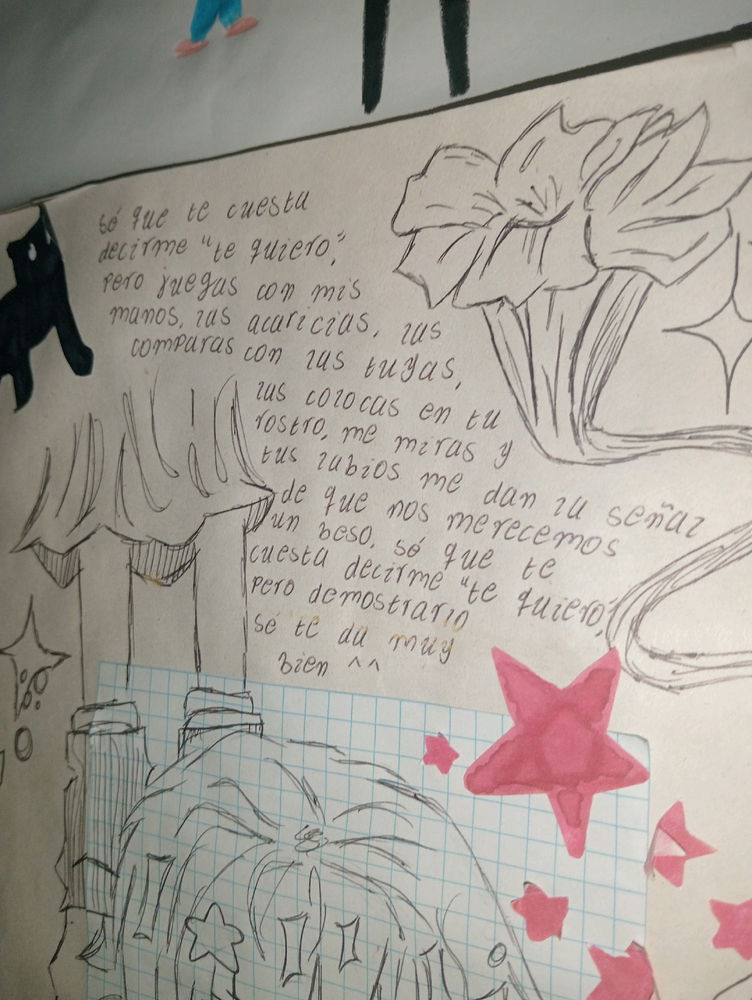 sé que te cuesta
decirme "te quiero",
pero juegas con mis
manos, las acaricias, las
comparas con las tuyas,
las colocas en tu
rostro, me miras y
tus labios me dan la señal
de que nos merecemos
un beso, sé que te
cuesta decirme "te quiero",
pero demostrarlo
sé te da muy
bien ^^